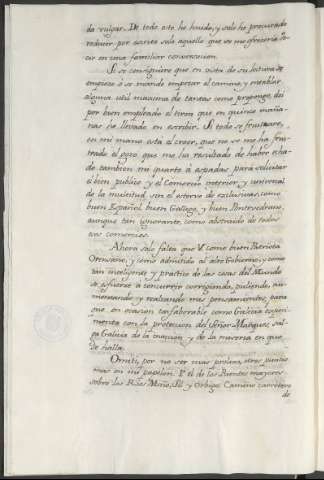 da vulgar. De todo esto he huido, y solo he procurado
reducir por escrito solo aquello que se me ofreceria de-
cir en una familiar conversacion.
Si se consiguiere que en vista de su lectura se
empieze ò se mande empezar el camino, y entablar
alguna util máxima de tantas como propongo, daré
por bien empleado el tiempo que en quince maña-
nas he llevado en escribir. Si todo se frustrare,
en mi mano está el creer, que no se me ha frus-
trado el gozo que me ha resultado de haber echa-
do tambien mi quarto à espadas para solicitar
el bien publico y el Comercio interior, y universal
de la multitud sin el estorvo de exclusivas, como
buen Español, buen Gallego, y buen Pontevedrano,
aunque tan ignorante, como abstraido de todos
tres comercios.
Ahora solo falta que V. como buen Patricio
Orensano, y como admitido al alto Gobierno, y como
tan inteligente y practico de las cosas del Mundo
se esfuerze à convertir corrigiendo, puliendo, au-
mentando y realzando mis pensamientos, para
que en ocasion tan favorable como Galicia experi-
menta con la proteccion del Señor Marques, sal-
ga Galicia de la inaccion y de la miseria en que
se halla.
Omiti, por no ser mas prolixo, otros puntos
mas en mi papelon. 1º el de los Puentes mayores
sobre los Rios Miño, Sil y Orbigo. Camino carretero
de